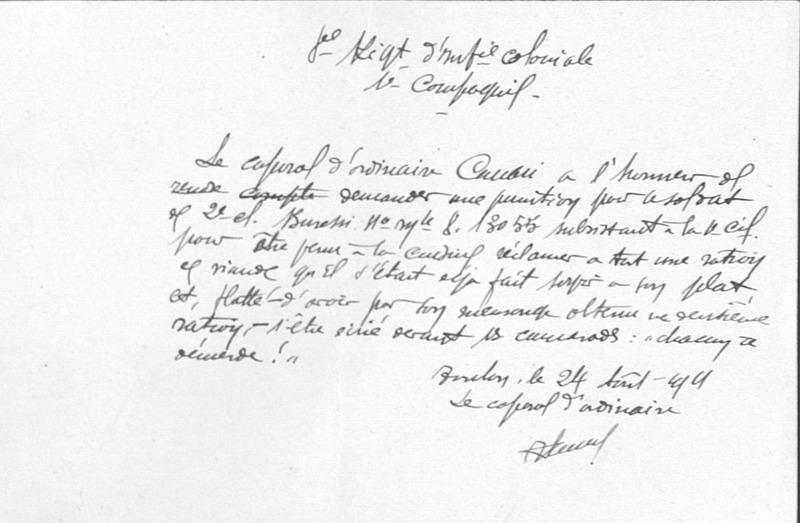 8e Régt d'Infie coloniale
1e Compagnie -
Le caporal d'ordinaire a l'honneur de
rendre compte demander une punition pour le soldat
de 2e cl. No mle 8.13055 subsistant à la 1e Cie.
pour être venu à la cuisine réclamer à tort une ration
de viande qu'il s'était déjà fait servir à son plat
et, flatté d'avoir par son mensonge obtenu une deuxième
ration, - s'être écrié devant ses camarades : "chacun se
démerde !"
Toulon, le 24 Août
Le caporal d'ordinaire